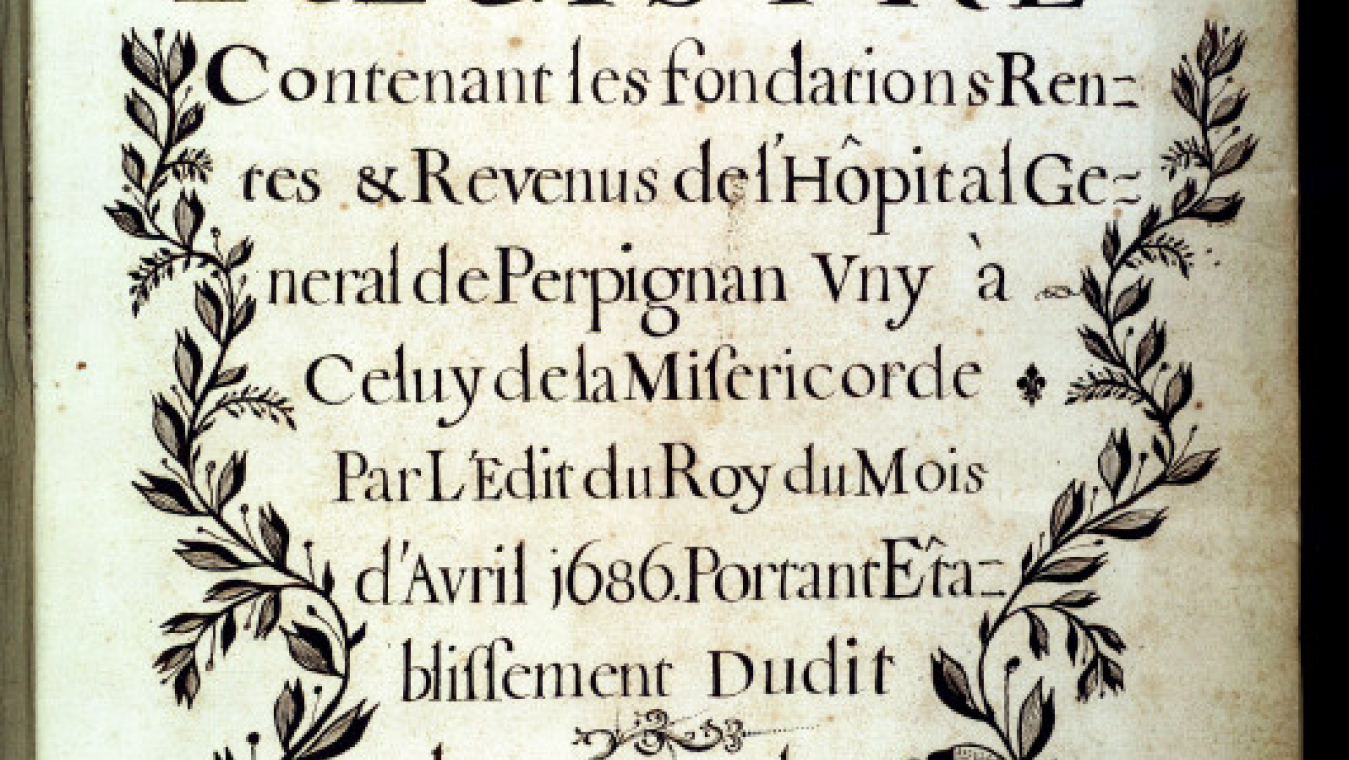 REGISTRE
Contenant les fondations Ren=
tes & Revenus de l'Hôpital Ge=
neral de Perpignan Vny à
Celuy de la Miſericorde
Par L'Edit du Roy du Mois
d'Avril j686. Portant Eta=
bliſſement Dudit